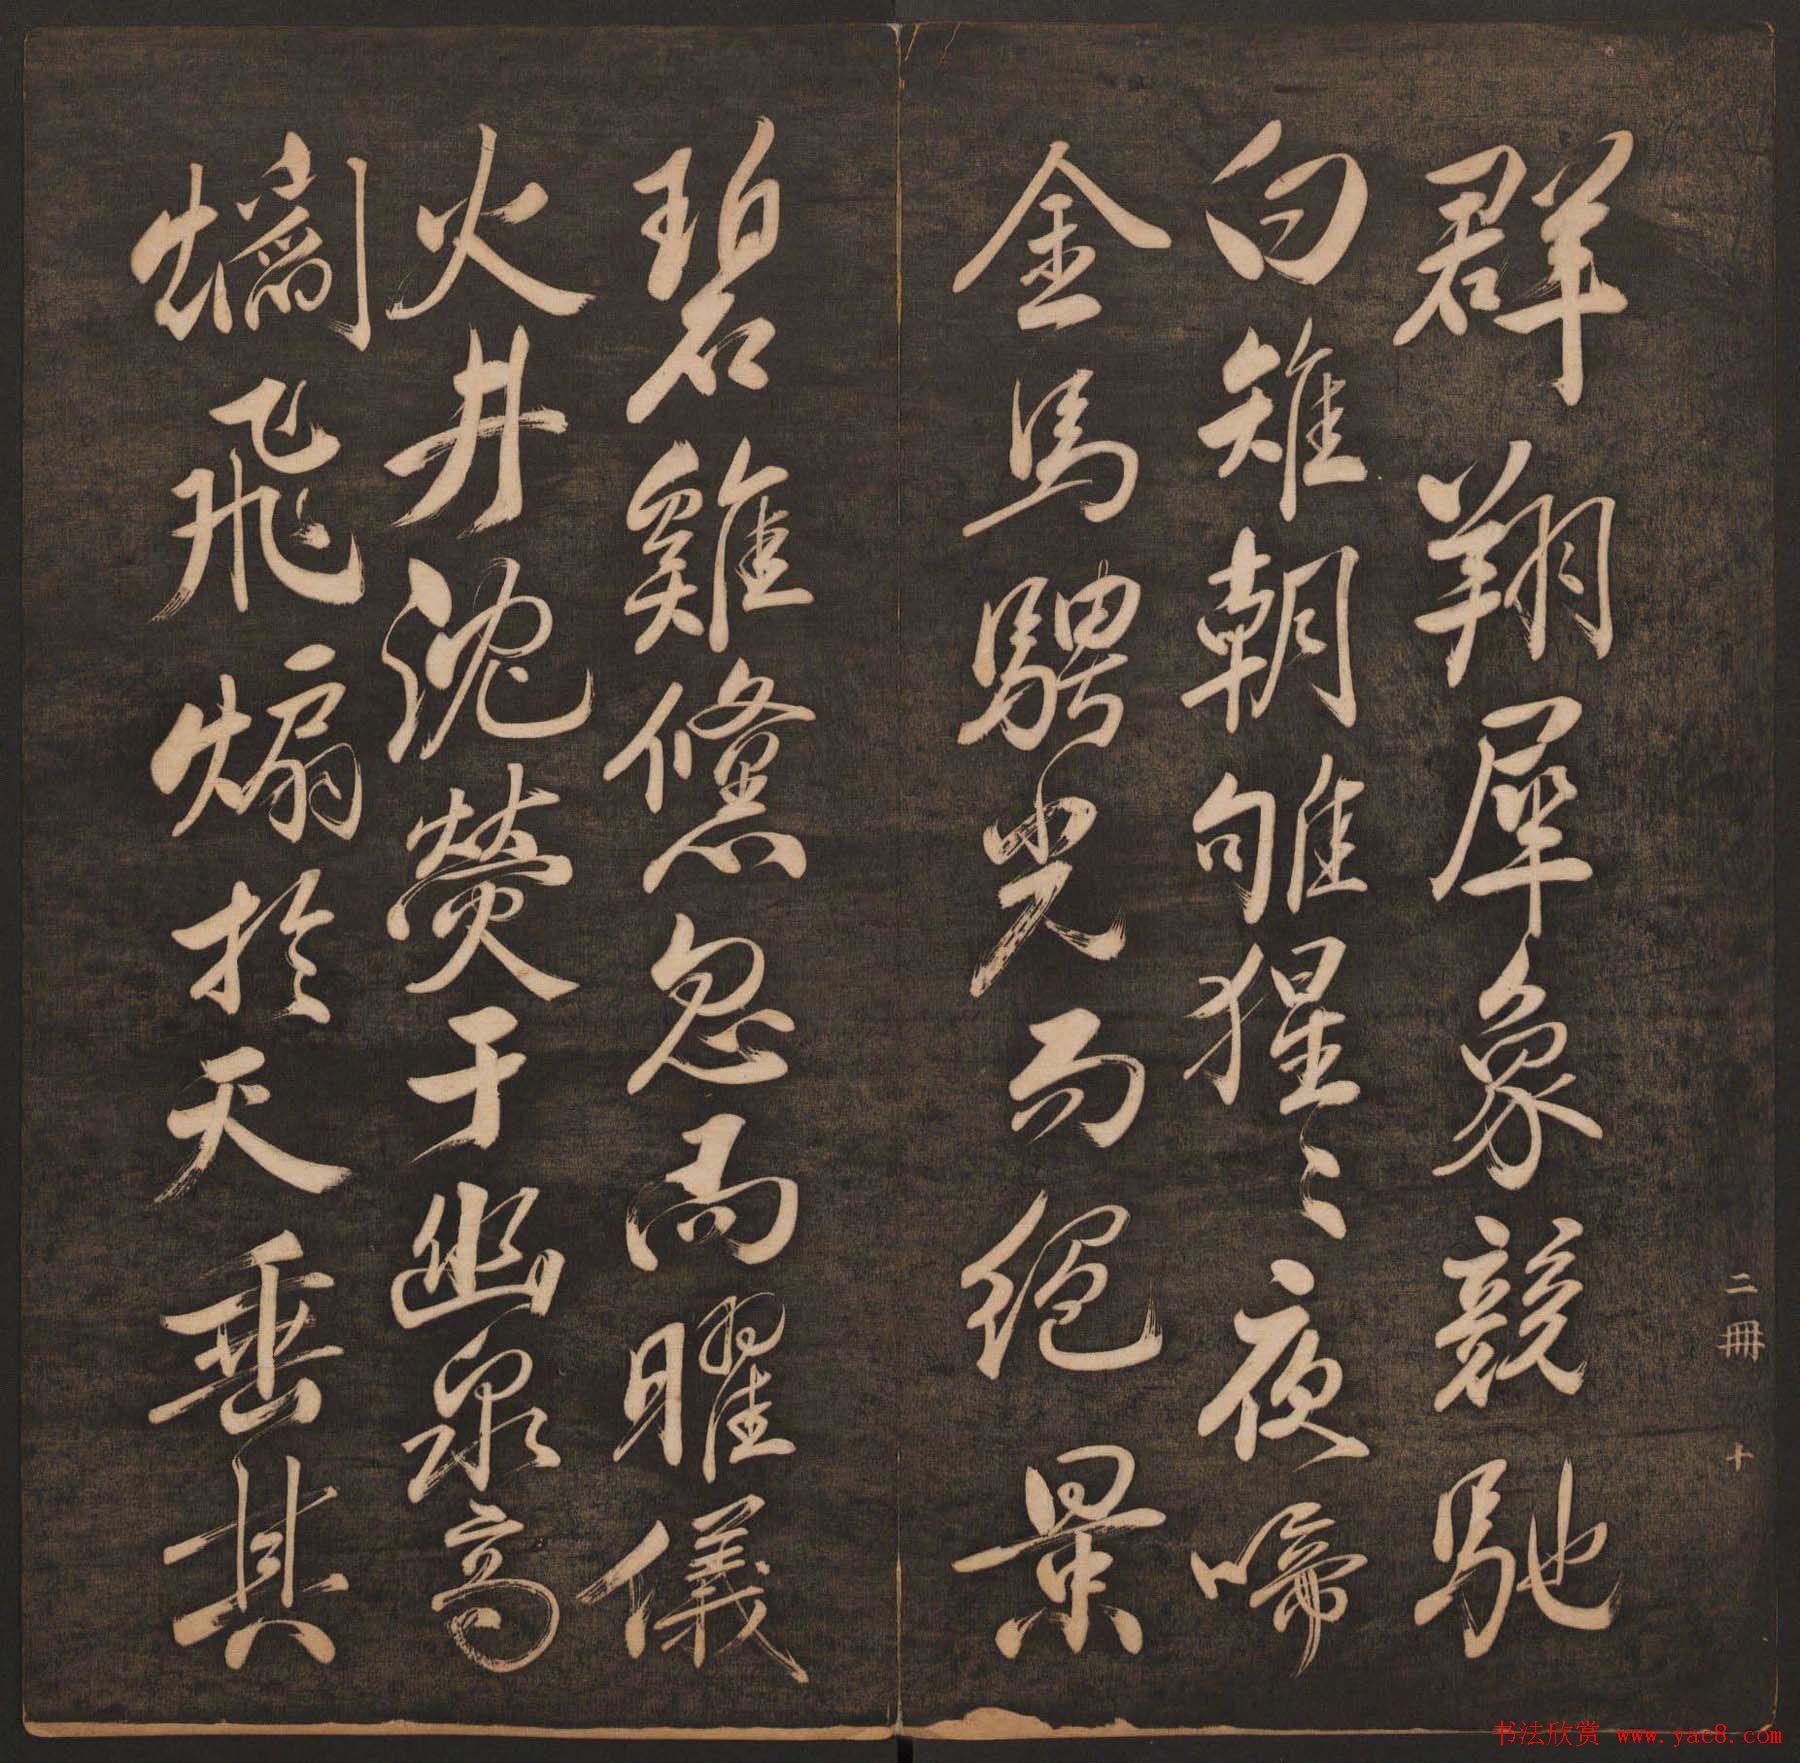 群翔犀象競馳
白雉朝雊猩〻夜啼
金馬騁光而絕景
碧雞儵忽而曜儀
火井沈熒于幽泉高
爓飛煽於天垂其
二冊 十
书法欣赏 www.yac8.com